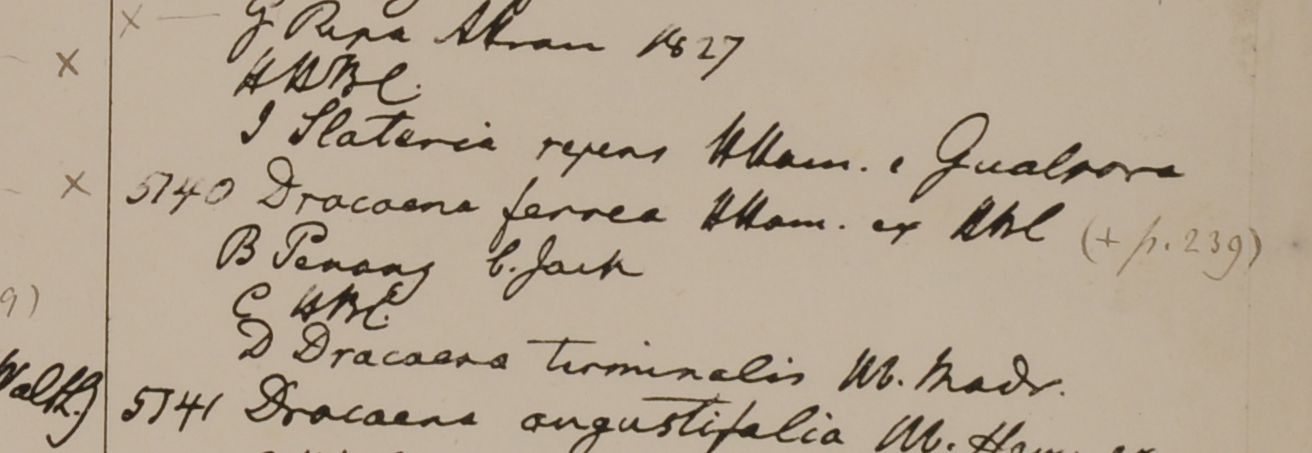 G Ripa Akran 1827
H HBC.
I Slateria repens HHam. e Gualpora
5140 Dracaena ferrea HHam. ex HBC (+ p. 239)
B Penang C. Jack
C HBC
D Dracaena terminalis Hb. Madr.
Wall.
5141 Dracaena angustifolia Hb. Ham. ex